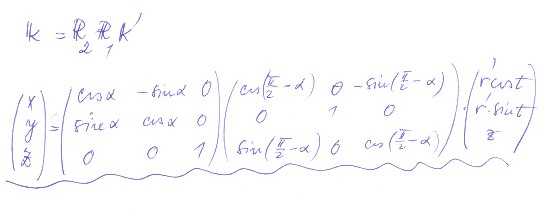 𝕜 = ℝ₂ ℝ₁ 𝕜′
(x y z) = (cosα −sinα 0; sinα cosα 0; 0 0 1) (cos(π/2 −α) 0 −sin(π/2 −α); 0 1 0; sin(π/2 −α) 0 cos(π/2 −α)) · (r′cost; r′·sint; z)